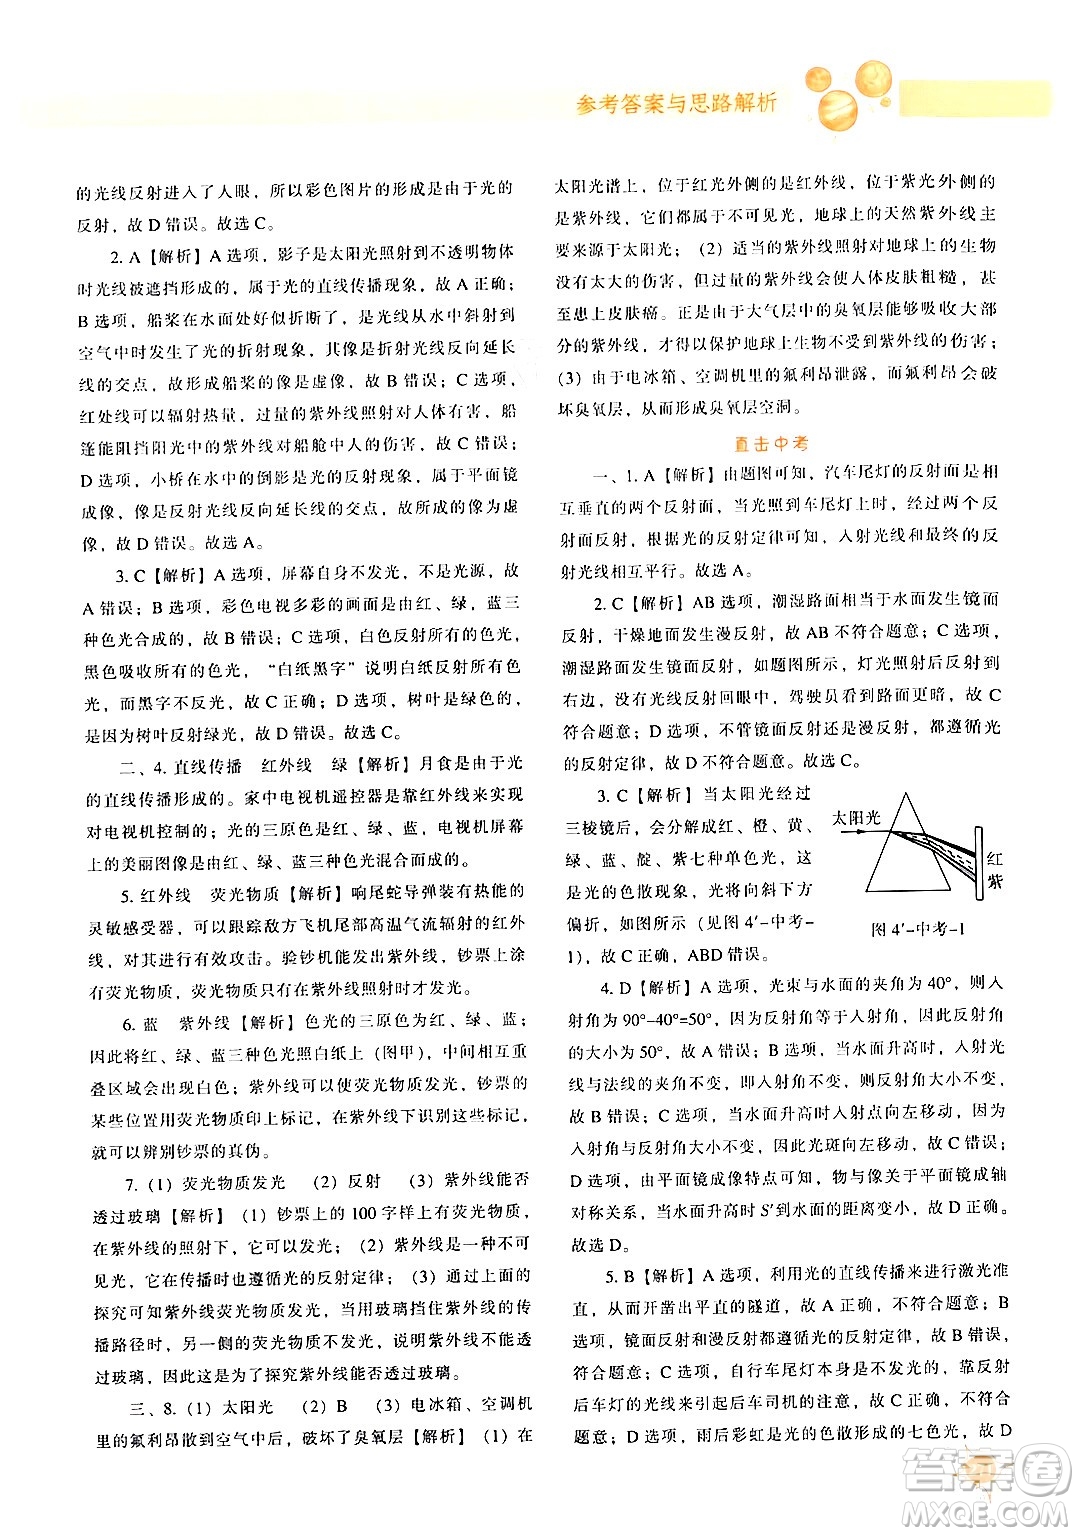 参考答案与思路解析
的光线反射进入了人眼，所以彩色图片的形成是由于光的
反射，故 D 错误。故选 C。
2. A【解析】A 选项，影子是太阳光照射到不透明物体
时光线被遮挡形成的，属于光的直线传播现象，A 错误；
B 选项，船桨在水面处好似折断了，是光线从水中斜射到
空气中时发生了光的折射现象，其像是折射光线反向延长
线的交点，故形成船桨的像是虚像，故 B 错误；C 选项，
红处线可以辐射热量，过量的紫外线照射对人体有害，船
篷能阻挡阳光中的紫外线对船舱中人的伤害，故 C 错误；
D 选项，小桥在水中的倒影是光的反射现象，属于平面镜
成像，像是反射光线反向延长线的交点，故所成的像是虚
像，故 D 错误。故选 A。
3. C【解析】A 选项，屏幕自身不发光，不是光源，故
A 错误；B 选项，彩色电视多彩的画面是由红、绿、蓝三
种色光合成的，故 B 错误；C 选项，白色反射所有的色光，
黑色吸收所有的色光，“白纸黑字”说明白纸反射所有色
光，而黑字不反光，故 C 正确；D 选项，树叶是绿色的，
是因为树叶反射绿光，故 D 错误。故选 C。
二、4. 直线传播　红外线　绿【解析】月食是由于光
的直线传播形成的。家中电视机遥控器是靠红外线来实现
对电视机控制的；光的三原色是红、绿、蓝，电视机屏幕
上的美丽图像是由红、绿、蓝三种色光混合而成的。
5. 红外线　荧光物质【解析】响尾蛇导弹装有热能的
灵敏感受器，可以跟踪敌方飞机尾部高温气流辐射的红外
线，对其进行有效攻击。验钞机能发出紫外线，钞票上涂
有荧光物质，荧光物质只有在紫外线照射时才发光。
6. 蓝　紫外线【解析】色光的三原色是红、绿、蓝；
因此将红、绿、蓝三种色光照白纸上（图甲），中间相互重
叠区域会出现白色；紫外线可以使荧光物质发光，钞票的
某些位置用荧光物质印上标记，在紫外线下识别这些标记，
就可以辨别钞票的真伪。
7.（1）荧光物质发光　（2）反射　（3）紫外线能否
透过玻璃【解析】（1）钞票上的 100 字样上有荧光物质，
在紫外线的照射下，它可以发光；（2）紫外线是一种不可
见光，它在传播时也遵循光的反射定律；（3）通过上面的
探究可知紫外线荧光物质发光，当用玻璃挡住紫外线的传
播路径时，另一侧的荧光物质不发光，说明紫外线不能透
过玻璃，故是为了探究紫外线能否透过玻璃。
三、8.（1）太阳光　（2）B　（3）电冰箱、空调机
里的氟利昂散到空气中后，破坏了臭氧层【解析】（1）在
太阳光谱上，位于红光外侧的是红外线，位于紫光外侧的
是紫外线，它们都属于不可见光，地球上的天然紫外线主
要来源于太阳光；（2）适当的紫外线照射对地球上的生物
没有太大的伤害，但过量的紫外线会使人体皮肤粗糙，甚
至患上皮肤癌。正是由于大气层中的臭氧层能够吸收大部
分的紫外线，才得以保护地球上生物不受到紫外线的伤害；
（3）由于电冰箱、空调机里的氟利昂泄露，而氟利昂会破
坏臭氧层，从而形成臭氧层空洞。
直击中考
一、1. A【解析】由题图可知，汽车尾灯的反射面是相
互垂直的两个反射面，当光照到车尾灯上时，经过两个反
射面反射，根据光的反射定律可知，入射光线和最终的反
射光线相互平行。故选 A。
2. C【解析】AB 选项，潮湿路面相当于水面发生镜面
反射，干燥地面发生漫反射，故 AB 不符合题意；C 选项，
潮湿路面发生镜面反射，如题图所示，灯光照射后反射到
右边，没有光线反射回眼中，驾驶员看到路面更暗，故 C
符合题意；D 选项，不管镜面反射还是漫反射，都遵循光
的反射定律，故 D 不符合题意。故选 C。
3. C【解析】当太阳光经过
三棱镜后，会分解成红、橙、黄、
绿、蓝、靛、紫七种单色光，这
是光的色散现象，其向斜下方
偏折，如图所示（见图 4′-中考-
1），故 C 正确，ABD 错误。
太阳光
红
紫
图 4′-中考-1
4. D【解析】A 选项，光束与水面的夹角为 40°，则入
射角为 90°-40°=50°，因为反射角等于入射角，因此反射角
的大小为 50°，故 A 错误；B 选项，当水面升高时，入射光
线与法线的夹角不变，即入射角不变，故反射角大小不变，
故 B 错误；C 选项，当水面升高时入射点向左移动，由于
入射角与反射角大小不变，因此光斑向左移动，故 C 错误；
D 选项，由平面镜成像特点可知，物与像关于平面镜成轴
对称关系，当水面升高时 S′到水面的距离变小，故 D 正确。
故选 D。
5. B【解析】A 选项，利用光的直线传播来进行激光准
直，从而开凿出平直的隧道，故 A 正确，不符合题意；B
选项，镜面反射和漫反射都遵循光的反射定律，故 B 错误，
符合题意；C 选项，自行车尾灯本身是不发光的，靠反射
后车灯的光线来引起后车司机的注意，故 C 正确，不符合
题意；D 选项，雨后彩虹是光的色散形成的七色光，故 D
答案圈
MXQE.COM